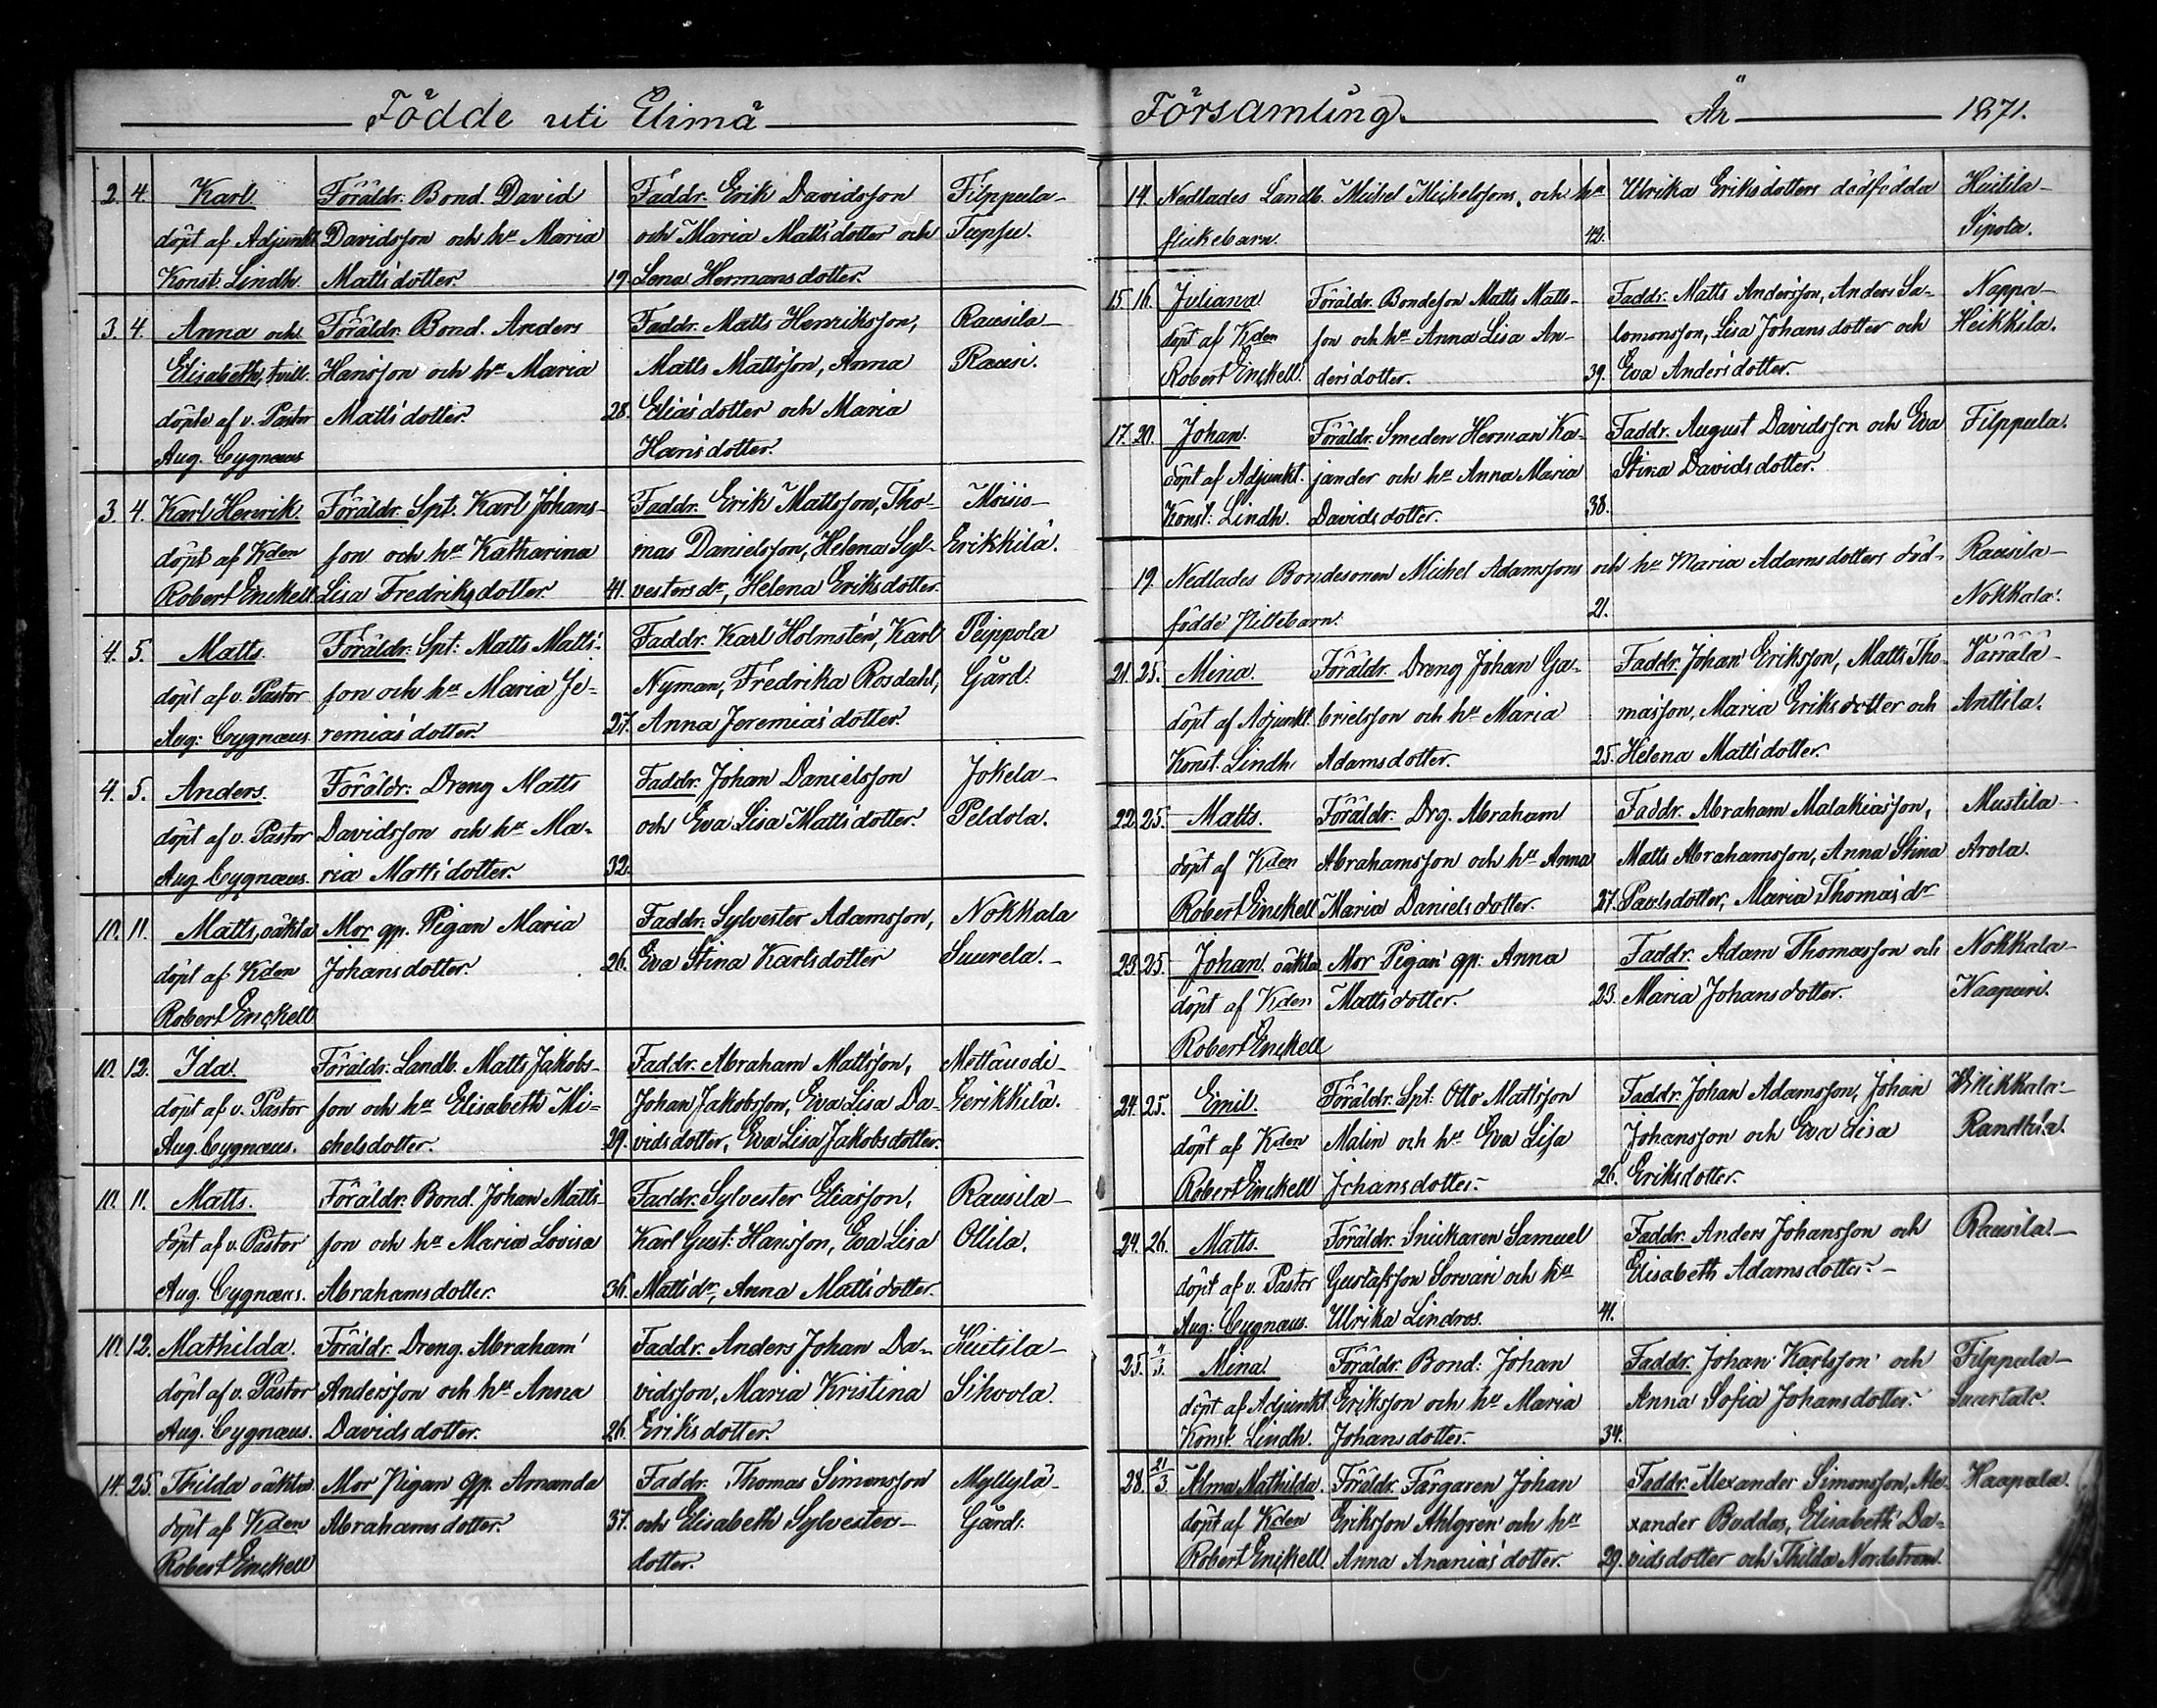 Födde uti Elimä
2. 4. Karl. Föräldr. Bond. David Faddr. Erik Davidsson Filppula-
döpt af Adjunkt Davidsson och hu Maria och Maria Matts'dotter och Tupsu.
Konst. Lindh. Matts'dotter. 19. Lena Hermansdotter.
3. 4. Anna och Föräldr. Bond. Anders Faddr. Matts Henriksson, Rausila-
Elisabeth, tvill. Hansson och hu Maria Matts Mattsson, Anna Rausi.
döpte af v. Pastor Matts'dotter. 28. Elias'dotter och Maria
Aug. Cygnæus Hans'dotter.
3. 4. Karl Henrik. Föräldr. Spt. Karl Johans- Faddr. Erik Mattsson, Tho- Moisio-
döpt af Kden son och hu Katharina mas Danielsson, Helena Syl- Erikkilä.
Robert Enckell. Lisa Fredriksdotter. 41. vestersdr, Helena Eriksdotter.
4. 5. Matts. Föräldr. Spt: Matts Matts- Faddr. Karl Holmstén, Karl Peippola
döpt af v. Pastor son och hu Maria Je- Nyman, Fredrika Rosdahl, Gård.
Aug: Cygnæus. remias'dotter. 27. Anna Jeremias'dotter.
4. 5. Anders. Föräldr: Dreng Matts Faddr. Johan Danielsson Jokela-
döpt af v. Pastor Davidsson och hu Ma- och Eva Lisa Matts'dotter. Peldola.
Aug. Cygnæus. ria Matts'dotter. 32.
10. 11. Matts, oäkta Mor qp. Pigan Maria Faddr. Sylvester Adamsson, Nokkala
döpt af Kden Johansdotter. 26. Eva Stina Karlsdotter Suurela.-
Robert Enckell
10. 12. Ida. Föräldr. Landb. Matts Jakobs- Faddr. Abraham Mattsson, Mettäuodi-
döpt af v. Pastor son och hu Elisabeth Mi- Johan Jakobsson, Eva Lisa Da- Eerikkilä.
Aug. Cygnæus. chelsdotter. 29. vidsdotter, Eva Lisa Jakobsdotter.
10. 11. Matts. Föräldr. Bond. Johan Matts- Faddr. Sylvester Eliasson, Rausila-
döpt af v. Pastor son och hu Maria Lovisa Karl Gust: Hansson, Eva Lisa Ollila.
Aug. Cygnæus. Abrahamsdotter. 36. Matts'dr, Anna Matts'dotter.
10. 12. Mathilda. Föräldr. Dreng. Abraham Faddr. Anders Johan Da- Hutila-
döpt af v. Pastor Andersson och hu Anna vidsson, Maria Kristina Sihvola.
Aug. Cygnæus. Davidsdotter. 26. Eriksdotter.
14. 25. Thilda oäkta. Mor Pigan qp. Amanda Faddr. Thomas Simonsson Myllylä-
döpt af Kden Abrahamsdotter. 37. och Elisabeth Sylvester- Gård.
Robert Enckell dotter.
Församling. År 1871.
14. Nedlades Landb. Mickel Mickelssons, och hu Ulrika Eriksdotters dödfödda Hutila-
flickebarn. 42. Sipola.
15. 16. Juliana Föräldr. Bondeson Matts Matts- Faddr. Matts Andersson, Anders Sa- Nappa-
döpt af Kden son och hu Anna Lisa An- lomonsson, Lisa Johansdotter och Heikkilä.
Robert Enckell. ders'dotter. 39. Eva Anders'dotter.
17. 20. Johan. Föräldr. Smeden Herman Ka- Faddr. August Davidsson och Eva Filppula.
döpt af Adjunkt. jander och hu Anna Maria Stina Davidsdotter.
Konst: Lindh. Davidsdotter. 38.
19. Nedlades Bondesonen Mickel Adamssons och hu Maria Adamsdotters död- Rausila-
födde Piltebarn. 21. Nokkala.
21. 25. Mina. Föräldr. Dreng Johan Ga- Faddr. Johan Eriksson, Matts Tho- Värrälä-
döpt af Adjunkt. brielsson och hu Maria masson, Maria Eriksdotter och Anttila.
Konst. Lindh. Adamsdotter. 25. Helena Matts'dotter.
22. 25. Matts. Föräldr. Drg. Abraham Faddr. Abraham Malakiasson, Mustila-
döpt af Kden Abrahamsson och hu Anna Matts Abrahamsson, Anna Stina Arola.
Robert Enckell Maria Danielsdotter. 27. Paulsdotter, Maria Thomas'dr
23. 25. Johan. oäkta Mor Pigan qp. Anna Faddr. Adam Thomasson och Nokkala-
döpt af Kden Matts'dotter. 23. Maria Johansdotter. Naapuri.
Robert Enckell
24. 25. Emil. Föräldr. Spt: Otto Mattsson Faddr. Johan Adamsson, Johan Winikkala-
döpt af Kden Malin och hu Eva Lisa Johansson och Eva Lisa
Robert Enckell Johansdotter.- 26. Eriksdotter.
24. 26. Matts. Föräldr. Snickaren Samuel Faddr. Anders Johansson och Rausila.-
döpt af v. Pastor Gustafsson Sorvari och hu Elisabeth Adamsdotter.-
Aug: Cygnæus. Ulrika Lindros. 41.
25. Mina. Föräldr. Bond: Johan Faddr. Johan Karlsson och Filppula-
döpt af Adjunkt. Eriksson och hu Maria Anna Sofia Johansdotter.
Konst. Lindh. Johansdotter. 34.
28. 21/3 Alma Mathilda. Föräldr. Färgaren Johan Faddr. Alexander Simonsson, Ale- Haapala.
döpt af Kden Eriksson Ahlgrén och hu xander Buddas, Elisabeth Da-
Robert Enckell. Anna Ananias'dotter. 29. vidsdotter och Thilda Nordström.